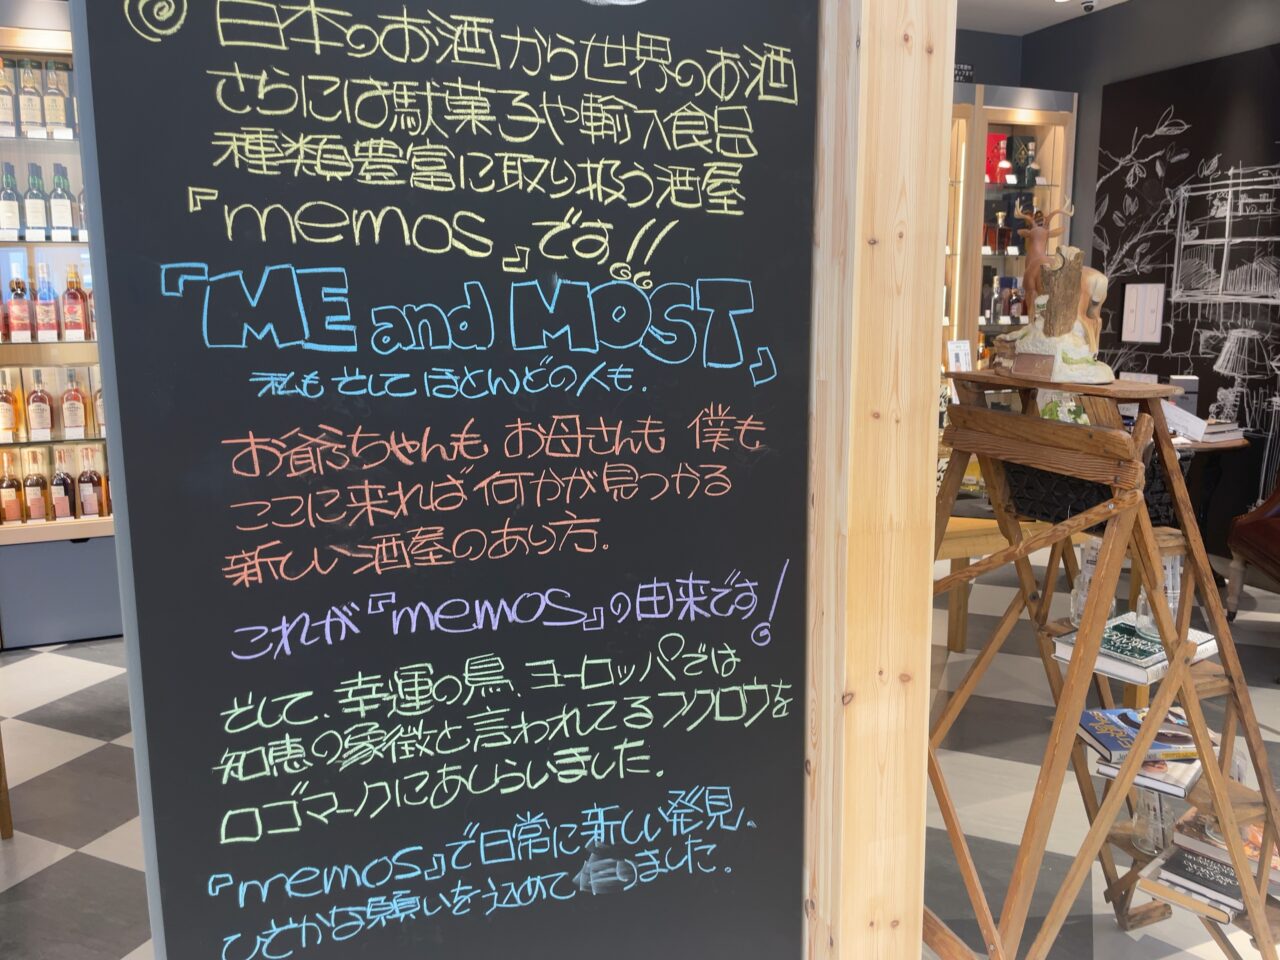 日本のお酒から世界のお酒
さらには駄菓子や輸入食品
種類豊富に取り扱う酒屋
『memos』です!!
『ME and MOST』
私も そして ほとんどの人も.
お爺ちゃんも お母さんも 僕も
ここに来れば何かが見つかる
新しい酒屋のあり方.
これが『memos』の由来です!
そして、幸運の鳥、ヨーロッパでは
知恵の象徴と言われてるフクロウを
ロゴマークにあしらいました.
『memos』で日常に新しい発見、
ひそかな願いを込めて作りました.